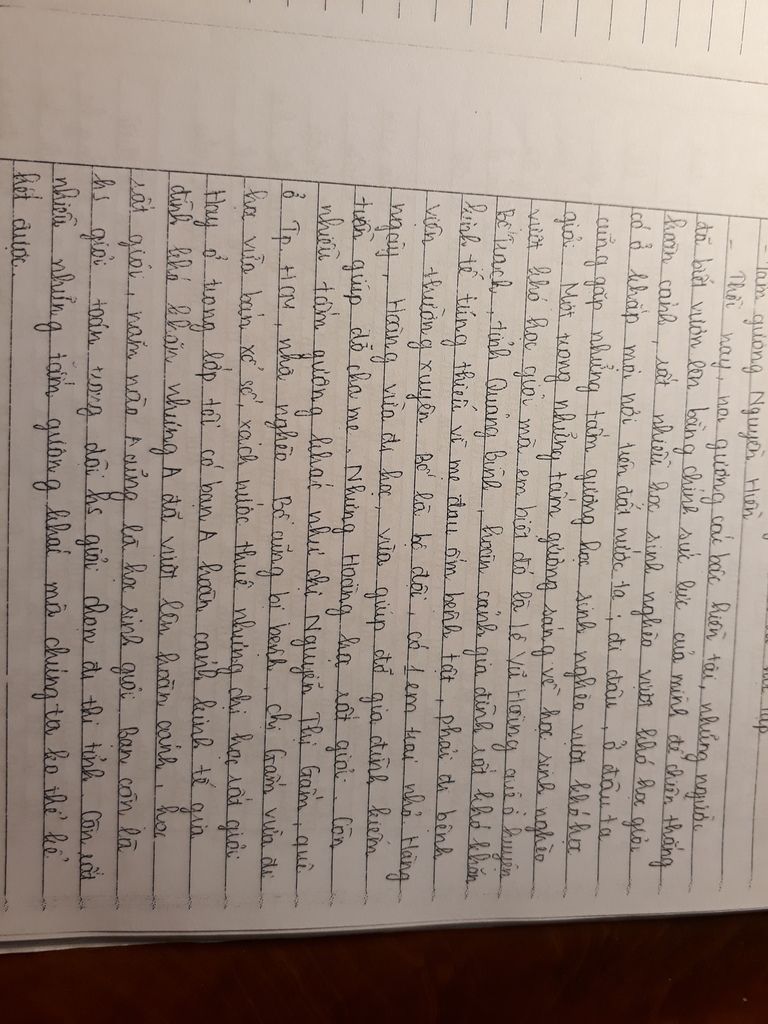 - Tấm gương Nguyễn Hiền
- Thời nay, noi gương các bậc hiền tài, những người
đã biết vươn lên bằng chính sức lực của mình để chiến thắng
hoàn cảnh, rất nhiều học sinh nghèo vượt khó học giỏi
có ở khắp mọi nơi trên đất nước ta, đi đâu, ở đâu ta
cũng gặp những tấm gương học sinh nghèo vượt khó học
giỏi. Một trong những tấm gương sáng về học sinh nghèo
vượt khó học giỏi mà em biết đó là Lê Vũ Hoàng quê ở huyện
Bố Trạch, tỉnh Quảng Bình, hoàn cảnh gia đình rất khó khăn
kinh tế túng thiếu vì mẹ đau ốm bệnh tật, phải đi bệnh
viện thường xuyên. Bố là bộ đội, có 1 em trai nhỏ. Hàng
ngày, Hoàng vừa đi học, vừa giúp đỡ gia đình kiếm
tiền giúp đỡ cha mẹ. Nhưng Hoàng học rất giỏi. Còn
nhiều tấm gương khác như chị Nguyễn Thị Gấm, quê
ở Tp. HCM, nhà nghèo. Bố cũng bị bệnh, chị Gấm vừa đi
học vừa bán xổ số, xách nước thuê nhưng chị học rất giỏi
Hay ở trong lớp tôi có bạn A hoàn cảnh kinh tế gia
đình khó khăn nhưng A đã vượt lên hoàn cảnh, học
rất giỏi, năm nào A cũng là học sinh giỏi. Bạn còn là
hs giỏi toán trong đội hs giỏi chọn đi thi tỉnh. Còn rất
nhiều những tấm gương khác mà chúng ta ko thể kể
hết được.